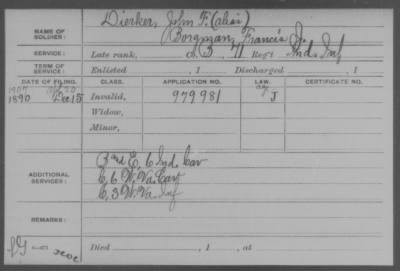 NAME OF SOLDIER: Dierker, John F. (alias)
Borgman, Francis J.
SERVICE: Late rank, 71 Reg't Ind. Inf
TERM OF SERVICE: Enlisted , 1 Discharged , 1
DATE OF FILING. CLASS. APPLICATION NO. LAW. CERTIFICATE NO.
1907
1890 Dec 15 Invalid, 979981 J
Widow,
Minor,
ADDITIONAL SERVICES: E, 6 Ind. Cav
E, 6 W. Va. Cav
E, 3 W. Va. Inf
REMARKS:
Died , 1 , at